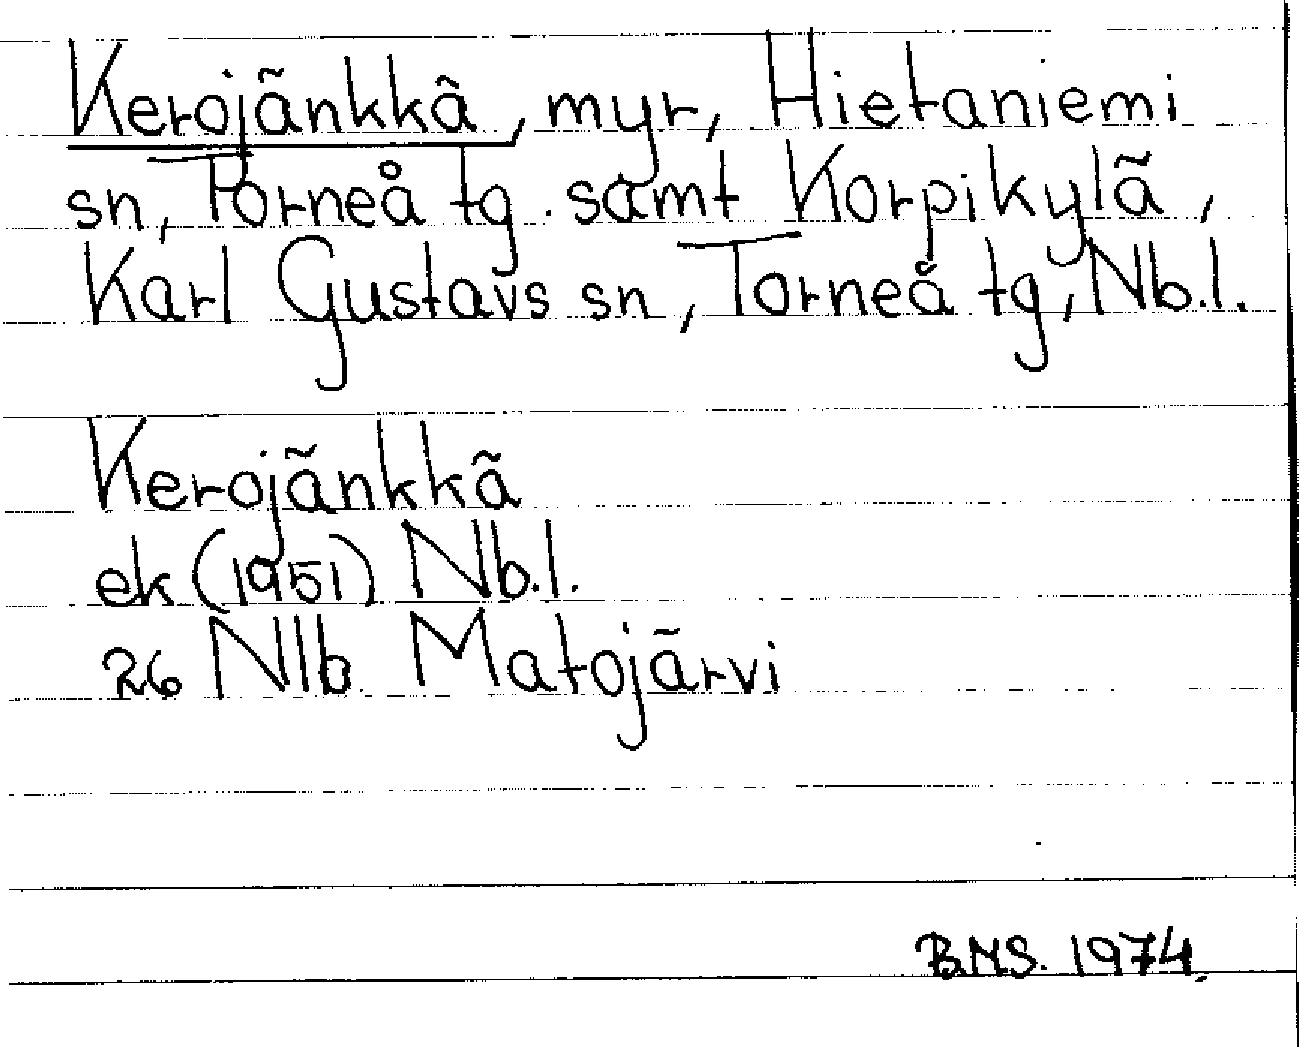 Kerojänkkä, myr, Hietaniemi
sn, Torneå tg. samt Korpikylä,
Karl Gustavs sn, Torneå tg, Nb.l.
Kerojänkkä
ek (1951) Nb.l.
26 Nlb Matojärvi
B.M.S. 1974.